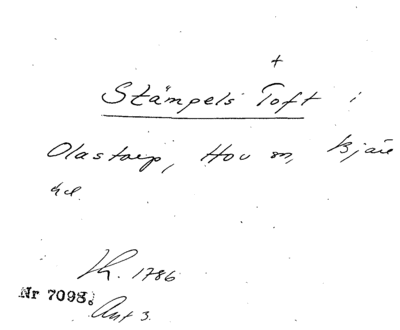 +
Stämpels Toft i
Olastorp, Hov sn, Bjäre
hd.
Lh. 1786
Nr 7098.
Ant 3.